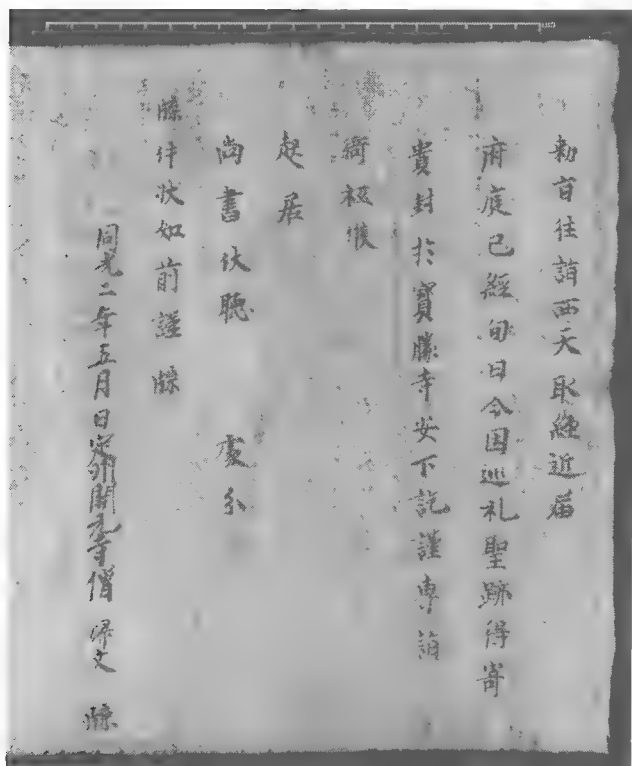 勅旨往詣西天取經近届
府庭已經旬日今因巡礼聖跡得寄
貴封於寶勝寺安下訖謹專詣
衙祗候
起居
尚書伏聽 處分
牒件狀如前謹牒
同光二年五月日定州開元寺僧 歸文 牒